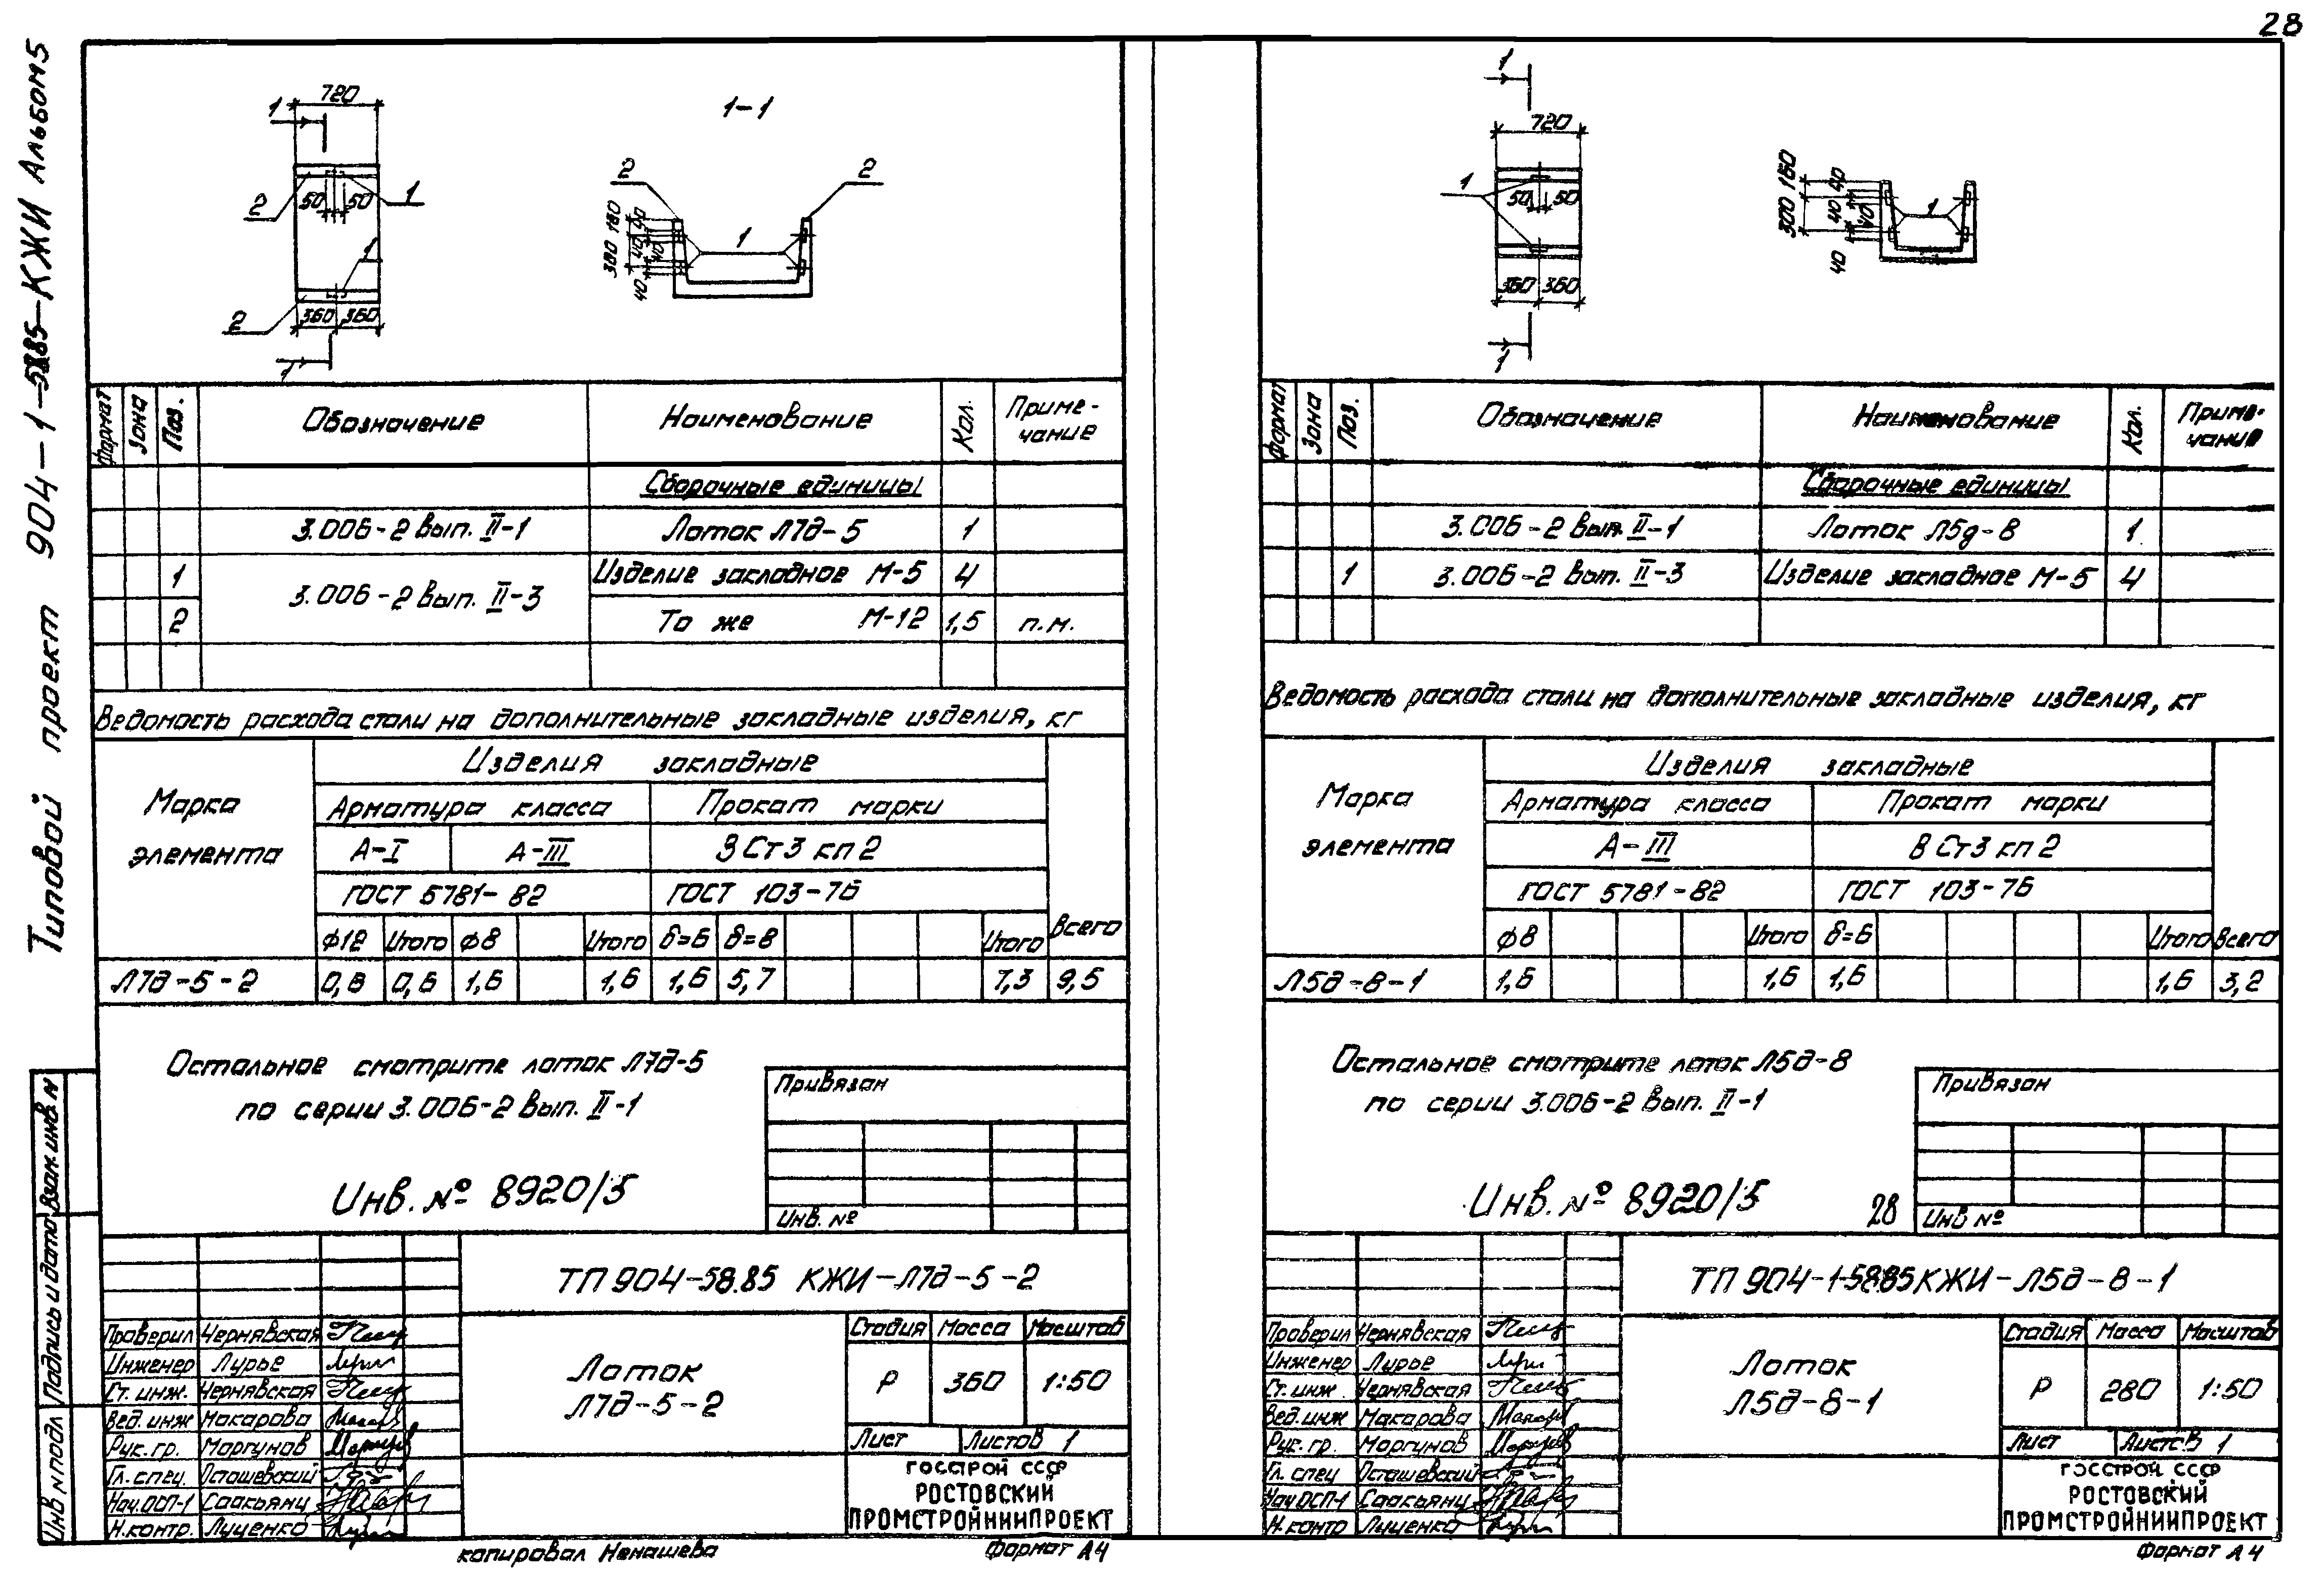 28
Типовой проект 904-1-58.85-КЖИ Альбом 5
1
720
1-1
2
2
50
50
1
2
1
2
360
360
1
180
300
40
40
40
40
1
Формат
Зона
Поз.
Обозначение
Наименование
Кол.
Приме-
чание
Сборочные единицы
3.006-2 вып. II-1
Лоток Л7д-5
1
1
3.006-2 вып. II-3
Изделие закладное М-5
4
2
То же М-12
1,5
п.м.
Ведомость расхода стали на дополнительные закладные изделия, кг
Марка
элемента
Изделия закладные
Арматура класса
Прокат марки
А-I
А-III
ВСт3 кп2
ГОСТ 5781-82
ГОСТ 103-76
Всего
ф12
Итого
ф8
Итого
δ=6
δ=8
Итого
Л7д-5-2
0,6
0,6
1,6
1,6
1,6
5,7
7,3
9,5
Остальное смотрите лоток Л7д-5
по серии 3.006-2 вып. II-1
Инв. № 8920/5
Привязан
Инв. №
ТП 904-58.85 КЖИ-Л7д-5-2
Проверил Чернявская
Инженер Лурье
Ст. инж. Чернявская
Вед. инж Макарова
Рук. гр. Моргунов
Гл. спец. Осташевский
Нач.ОСП-1 Саакьянц
Н. контр. Луценко
Лоток
Л7д-5-2
Стадия
Масса
Масштаб
Р
360
1:50
Лист
Листов 1
ГОССТРОЙ СССР
РОСТОВСКИЙ
ПРОМСТРОЙНИИПРОЕКТ
Взам. инв. N
Подпись и дата
Инв N подл
копировал Ненашева
Формат А4
1
720
1
50
50
360
360
1
160
300
40
40
40
40
1
Формат
Зона
Поз.
Обозначение
Наименование
Кол.
Приме-
чание
Сборочные единицы
3.006-2 вып. II-1
Лоток Л5д-8
1
1
3.006-2 вып. II-3
Изделие закладное М-5
4
Ведомость расхода стали на дополнительные закладные изделия, кг
Марка
элемента
Изделия закладные
Арматура класса
Прокат марки
А-III
ВСт3 кп2
ГОСТ 5781-82
ГОСТ 103-76
ф8
Итого
δ=6
Итого
Всего
Л5д-8-1
1,6
1,6
1,6
1,6
3,2
Остальное смотрите лоток Л5д-8
по серии 3.006-2 вып. II-1
Инв. № 8920/5
28
Привязан
Инв №
ТП 904-1-58.85 КЖИ-Л5д-8-1
Проверил Чернявская
Инженер Лурье
Ст. инж. Чернявская
Вед. инж Макарова
Рук. гр. Моргунов
Гл. спец Осташевский
Нач ОСП-1 Саакьянц
Н. контр Луценко
Лоток
Л5д-8-1
Стадия
Масса
Масштаб
Р
280
1:50
Лист
Листов 1
ГОССТРОЙ СССР
РОСТОВСКИЙ
ПРОМСТРОЙНИИПРОЕКТ
Формат А4